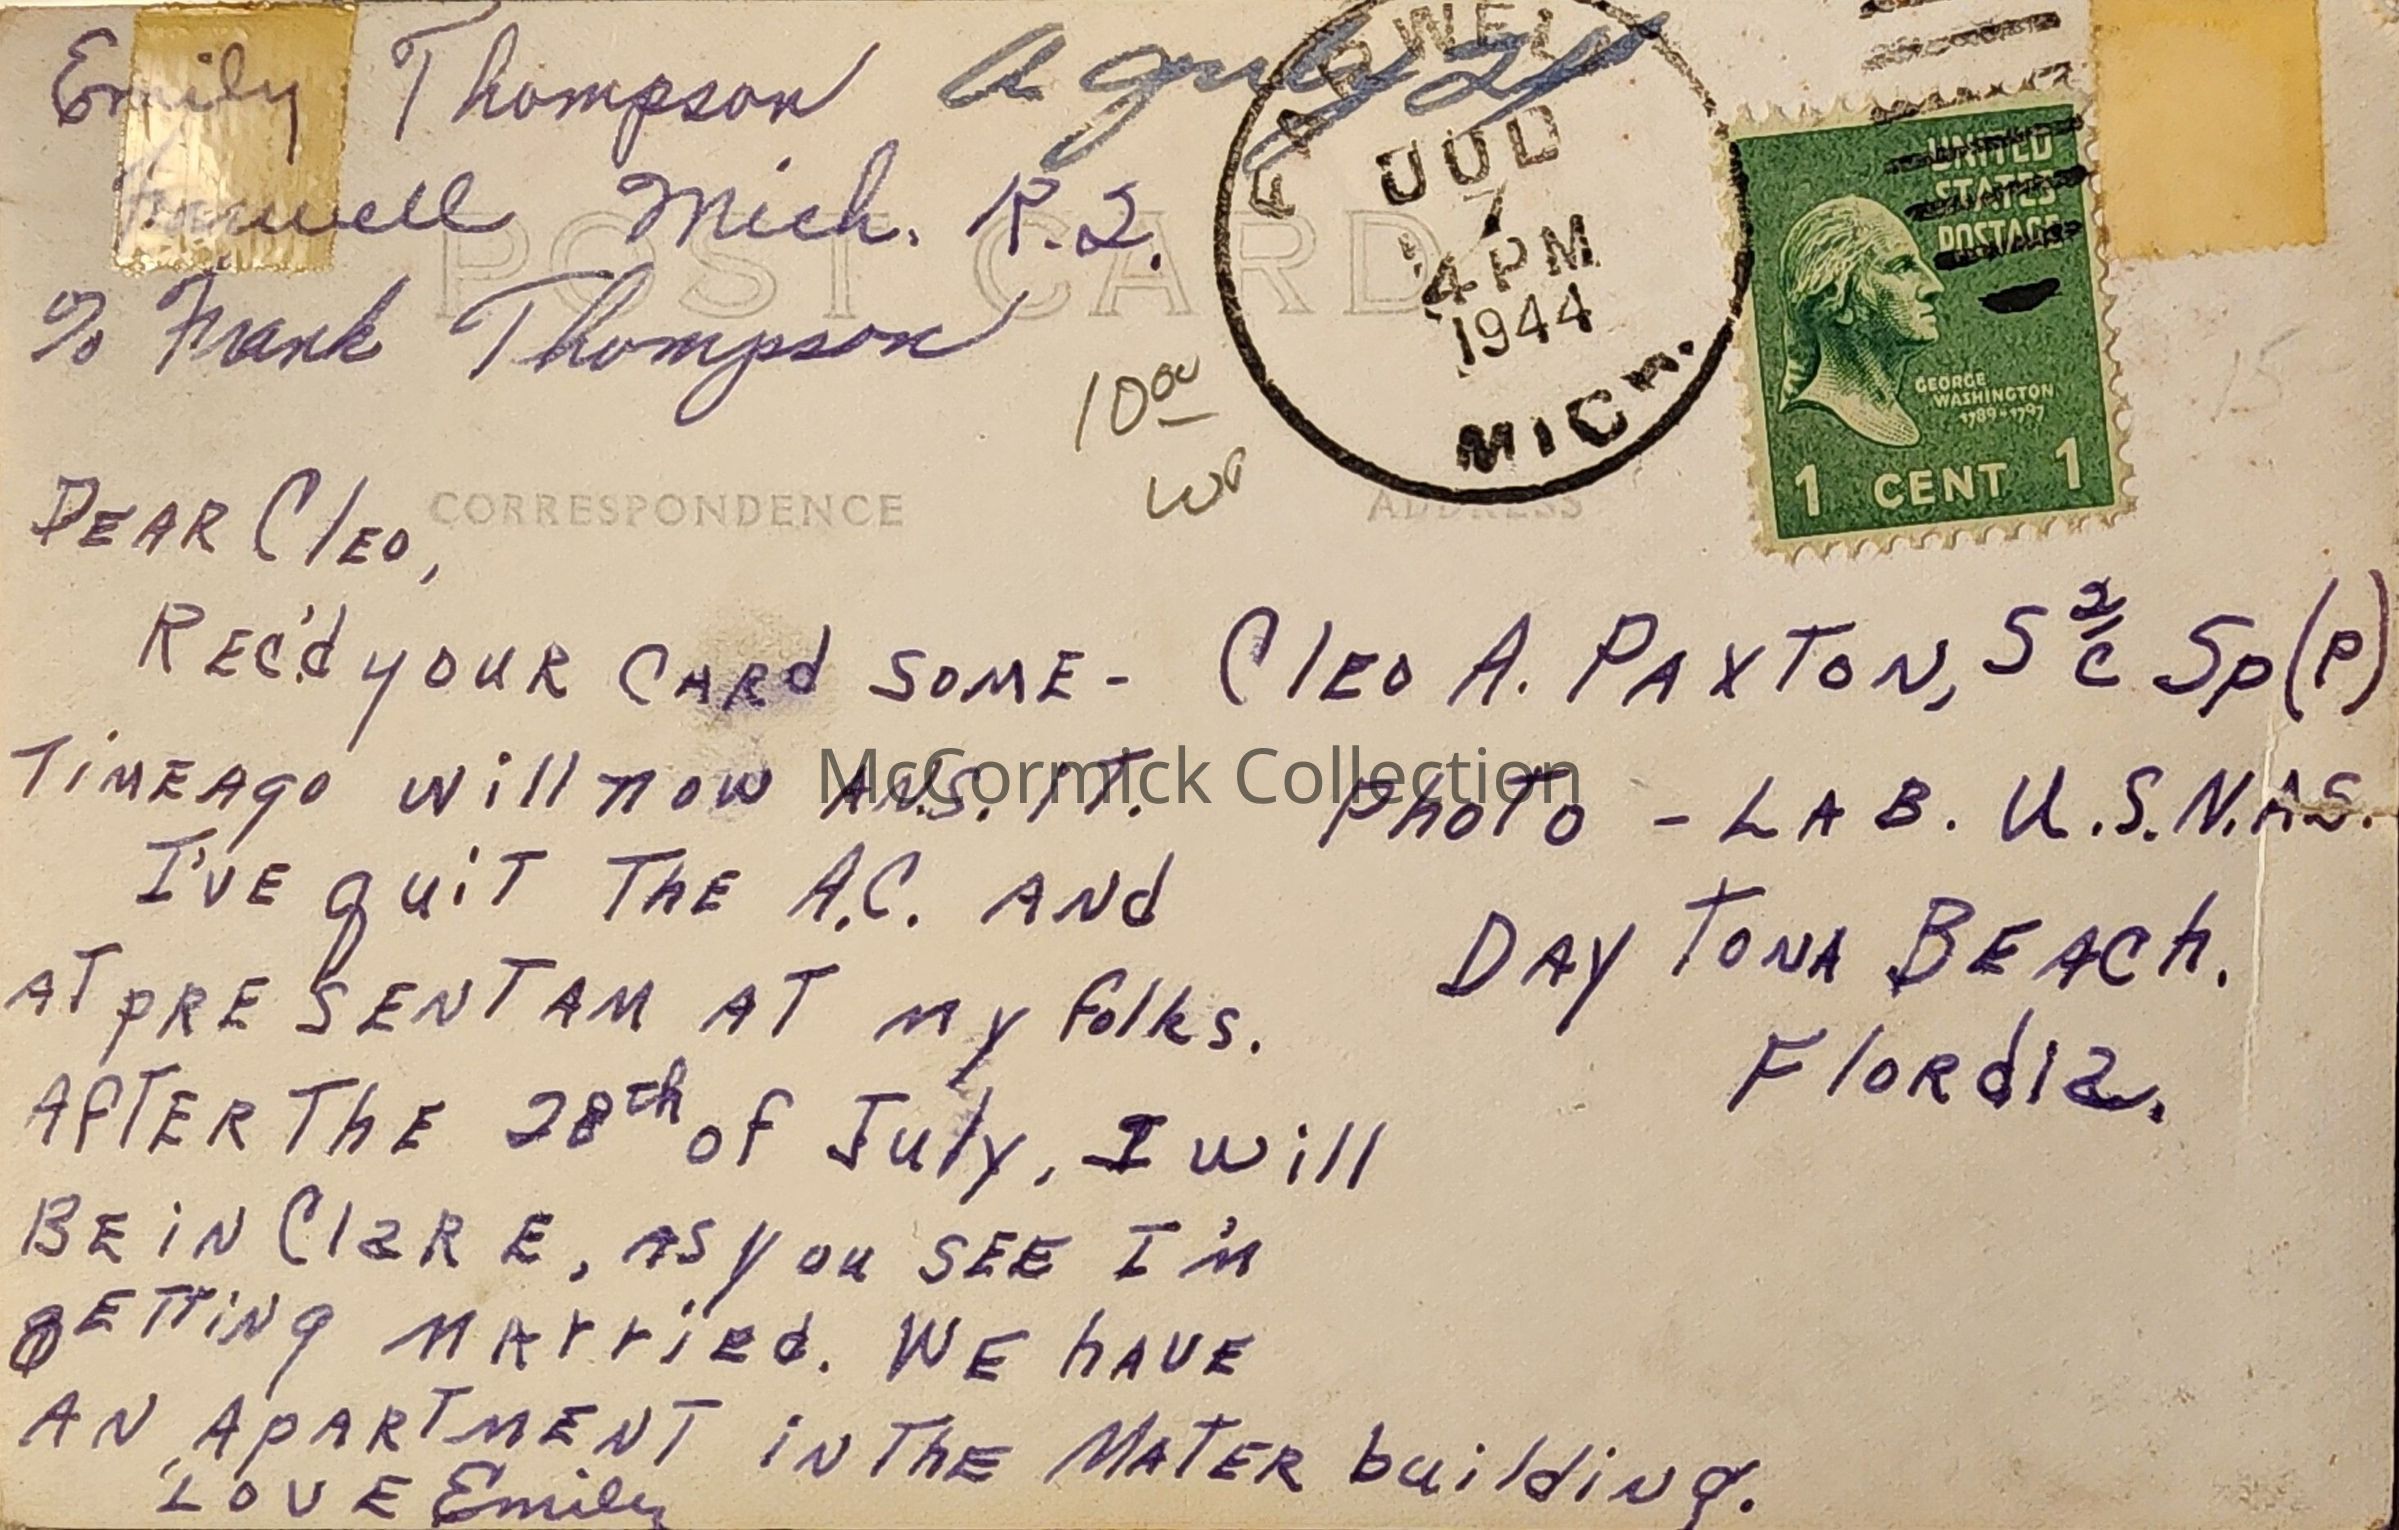 Emily Thompson
Farwell Mich. R.2.
℅ Frank Thompson
POST CARD
FARWELL
JUL
7
4 PM
1944
MICH.
UNITED
STATES
POSTAGE
GEORGE
WASHINGTON
1789-1797
1 CENT 1
10 00
15
CORRESPONDENCE
ADDRESS
DEAR Cleo,
REC'd your CARd SOME-
TiMEAgo will now ANS. IT.
I'VE quiT The A.C. ANd
AT pRESENT AM AT my folks.
AfTER The 28th of July, I will
BE iN ClaRE, AS you SEE I'm
gETTiNg MArried. WE hAVE
AN ApARTMENT iN ThE MATER building.
LOVE Emily
Cleo A. PAXTON, S 2/c Sp(P)
PhoTo - LAB. U.S.N.A.S.
DAyTONA BEACh.
Flordia.
McCormick Collection